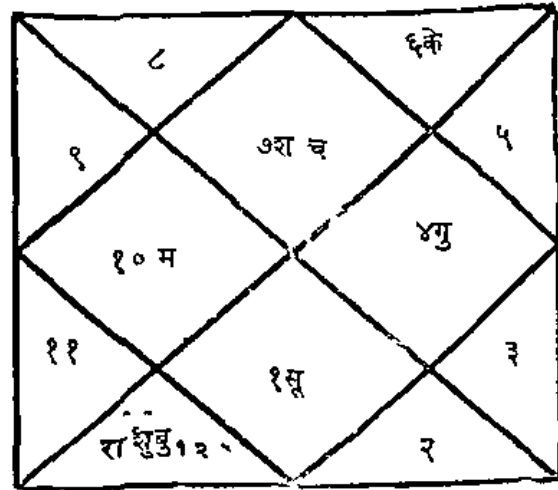 ८ ६के
९ ७श च ५
१० म ४गु
११ १सू ३
रा शुबु १२ २